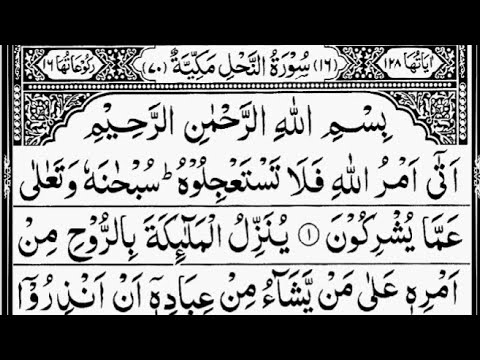 اٰیَاتُهَا ١٢٨ (١٦) سُوْرَةُ النَّحْلِ مَكِّیَّةٌ (٧٠) رُكُوْعَاتُهَا ١٦
بِسْمِ اللهِ الرَّحْمٰنِ الرَّحِیْمِ
اَتٰۤى اَمْرُ اللهِ فَلَا تَسْتَعْجِلُوْهُ ؕ سُبْحٰنَهٗ وَتَعٰلٰى
عَمَّا یُشْرِكُوْنَ ١ یُنَزِّلُ الْمَلٰٓئِكَةَ بِالرُّوْحِ مِنْ
اَمْرِهٖ عَلٰى مَنْ یَّشَآءُ مِنْ عِبَادِهٖۤ اَنْ اَنْذِرُوْۤا